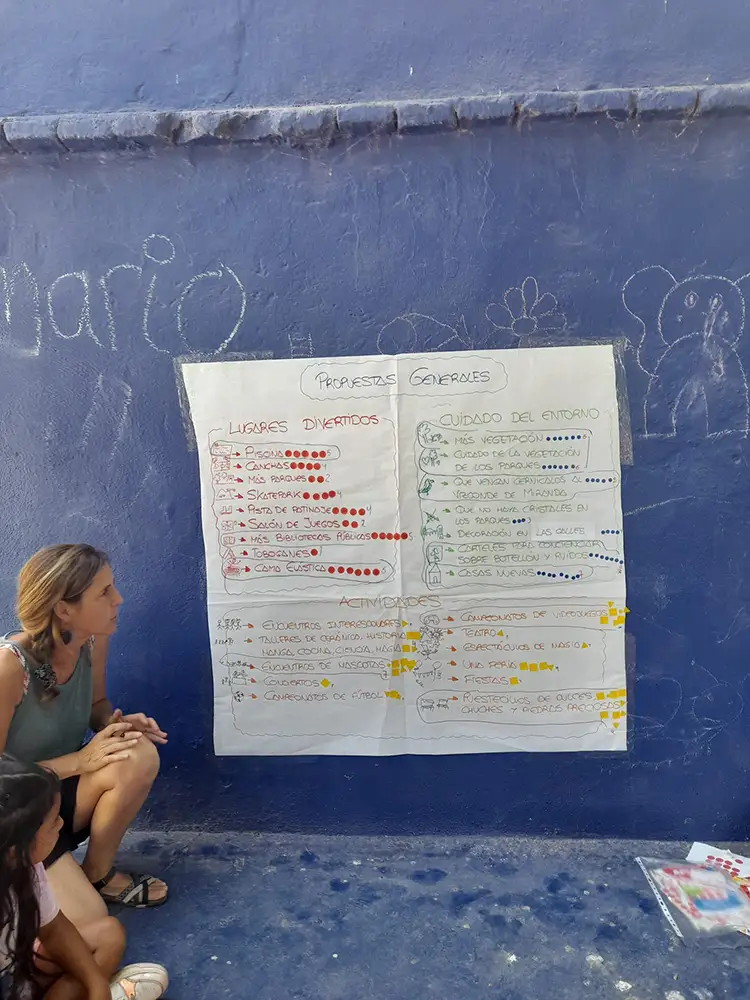 mario
PROPUESTAS GENERALES
LUGARES DIVERTIDOS
PISCINA 5
CANCHAS 4
MÁS PARQUES 2
SKATEPARK 4
PISTA DE PATINAJE 4
SALÓN DE JUEGOS 2
MÁS BIBLIOTECAS PÚBLICAS 5
TOBOGANES 1
CAMA ELÁSTICA 6
CUIDADO DEL ENTORNO
MÁS VEGETACIÓN 6
CUIDADO DE LA VEGETACIÓN
DE LOS PARQUES 6
QUE VENGAN CERNÍCALOS AL
VIZCONDE DE MIRANDA
QUE NO HAYA CRISTALES EN
LOS PARQUES 3
DECORACIÓN EN LAS CALLES
CARTELES PARA CONCIENCIAR
SOBRE BOTELLÓN Y RUIDOS
CASAS NUEVAS 7
ACTIVIDADES
ENCUENTROS INTERESCOLARES
TALLERES DE CERÁMICA, HISTORIA
MANGA, COCINA, CIENCIA, MAGIA
ENCUENTROS DE MASCOTAS 7
CONCIERTOS
CAMPEONATOS DE FÚTBOL
CAMPEONATOS DE VIDEOJUEGOS
TEATRO
ESPECTÁCULOS DE MAGIA
UNA FERIA
FIESTAS
PUESTECILLOS DE DULCES
CHUCHES Y PIEDRAS PRECIOSAS